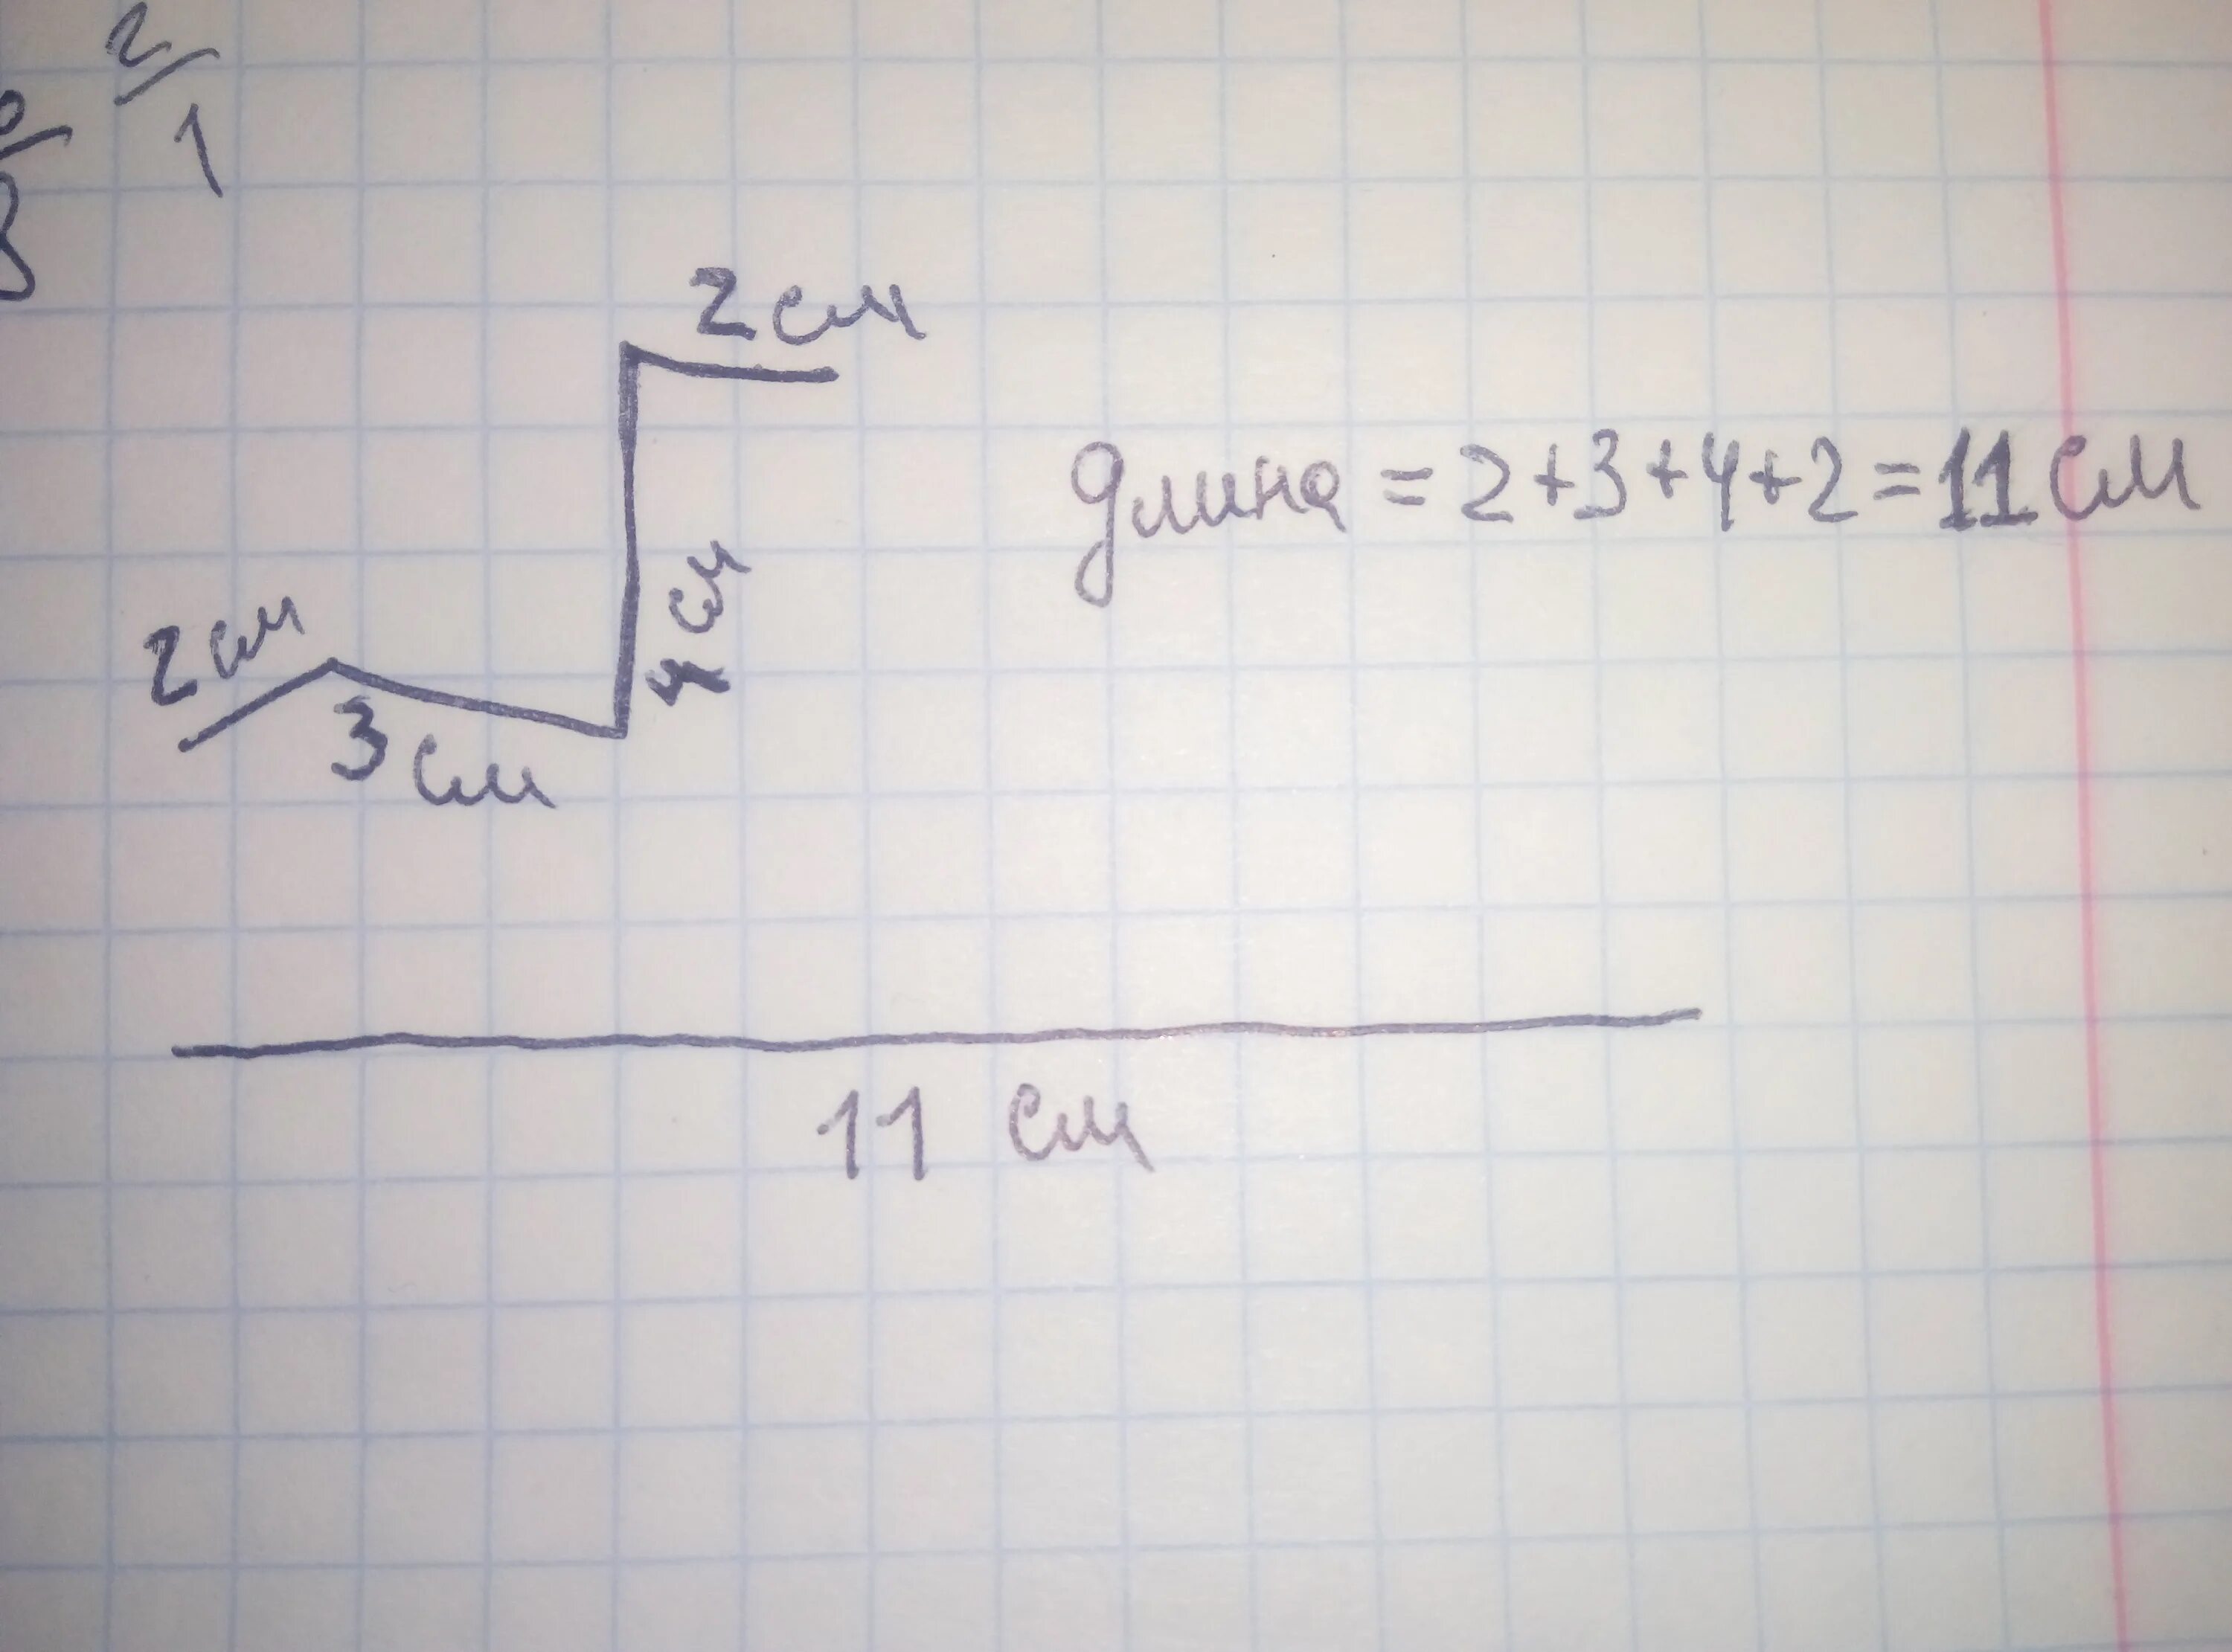 2
1
3
2 см
длина = 2+3+4+2 = 11 см
4 см
2 см
3 см
11 см